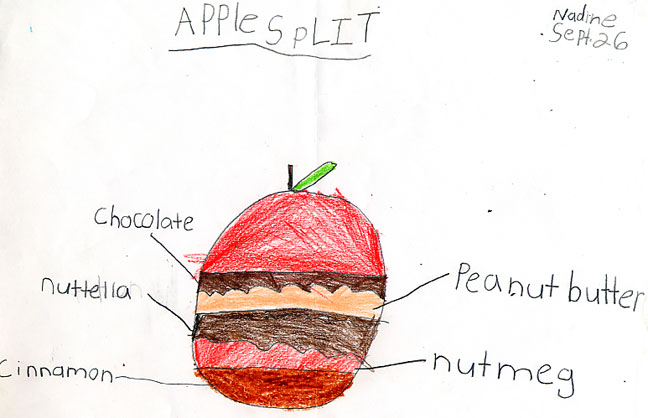 APPle SpLIT
Nadine
Sept. 26
Chocolate
nuttella
Peanut butter
Cinnamon
nutmeg